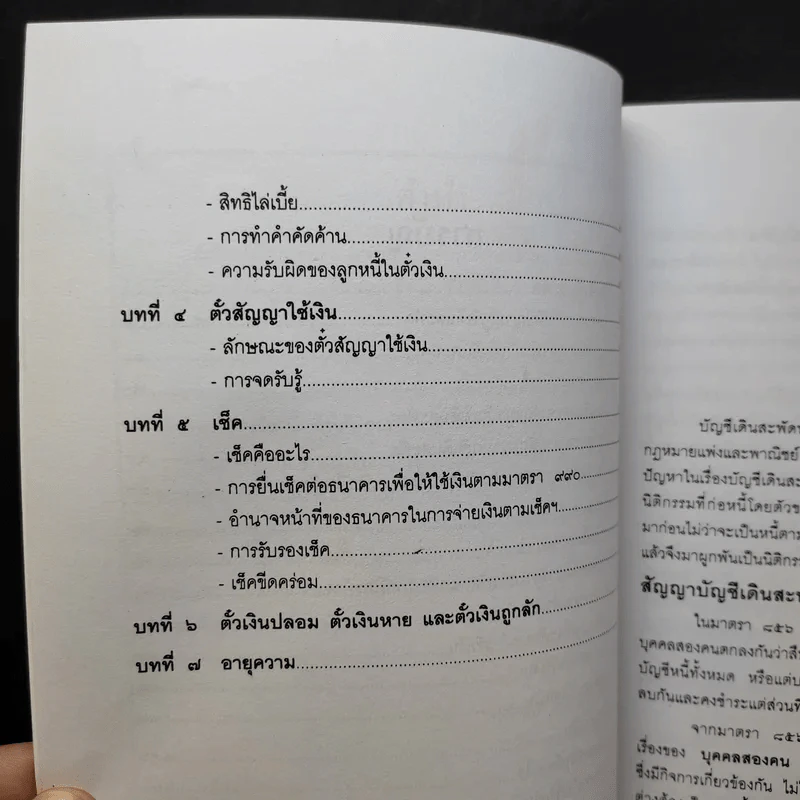 - สิทธิไล่เบี้ย
- การทำคำคัดค้าน
- ความรับผิดของลูกหนี้ในตั๋วเงิน
บทที่ ๔ ตั๋วสัญญาใช้เงิน
- ลักษณะของตั๋วสัญญาใช้เงิน
- การจดรับรู้
บทที่ ๕ เช็ค
- เช็คคืออะไร
- การยื่นเช็คต่อธนาคารเพื่อให้ใช้เงินตามมาตรา ๙๙๐
- อำนาจหน้าที่ของธนาคารในการจ่ายเงินตามเช็คฯ
- การรับรองเช็ค
- เช็คขีดคร่อม
บทที่ ๖ ตั๋วเงินปลอม ตั๋วเงินหาย และตั๋วเงินถูกลัก
บทที่ ๗ อายุความ
บัญชีเดินสะพัด
กฎหมายแพ่งและพาณิชย์
ปัญหาในเรื่องบัญชีเดินสะ
นิติกรรมที่ก่อหนี้โดยตัวข
มาก่อนไม่ว่าจะเป็นหนี้ตาม
แล้วจึงมาผูกพันเป็นนิติกร
สัญญาบัญชีเดินสะ
ในมาตรา ๘๕๖
บุคคลสองคนตกลงกันว่าสืบ
บัญชีหนี้ทั้งหมด หรือแต่บ
ลบกันและคงชำระแต่ส่วนที่
จากมาตรา ๘๕๖
เรื่องของ บุคคลสองคน
ซึ่งมีกิจการเกี่ยวข้องกัน